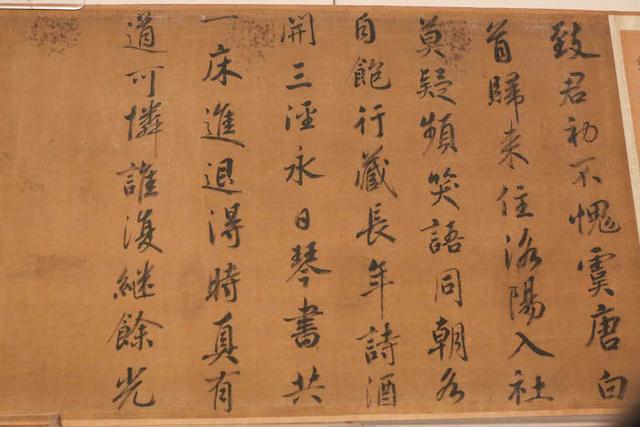 致君初不愧虞唐白
首歸来住洛陽入社
莫疑頻笑語同朝各
自飽行藏長年詩酒
開三徑永日琴書共
一床進退得時真有
道可憐誰復継餘光